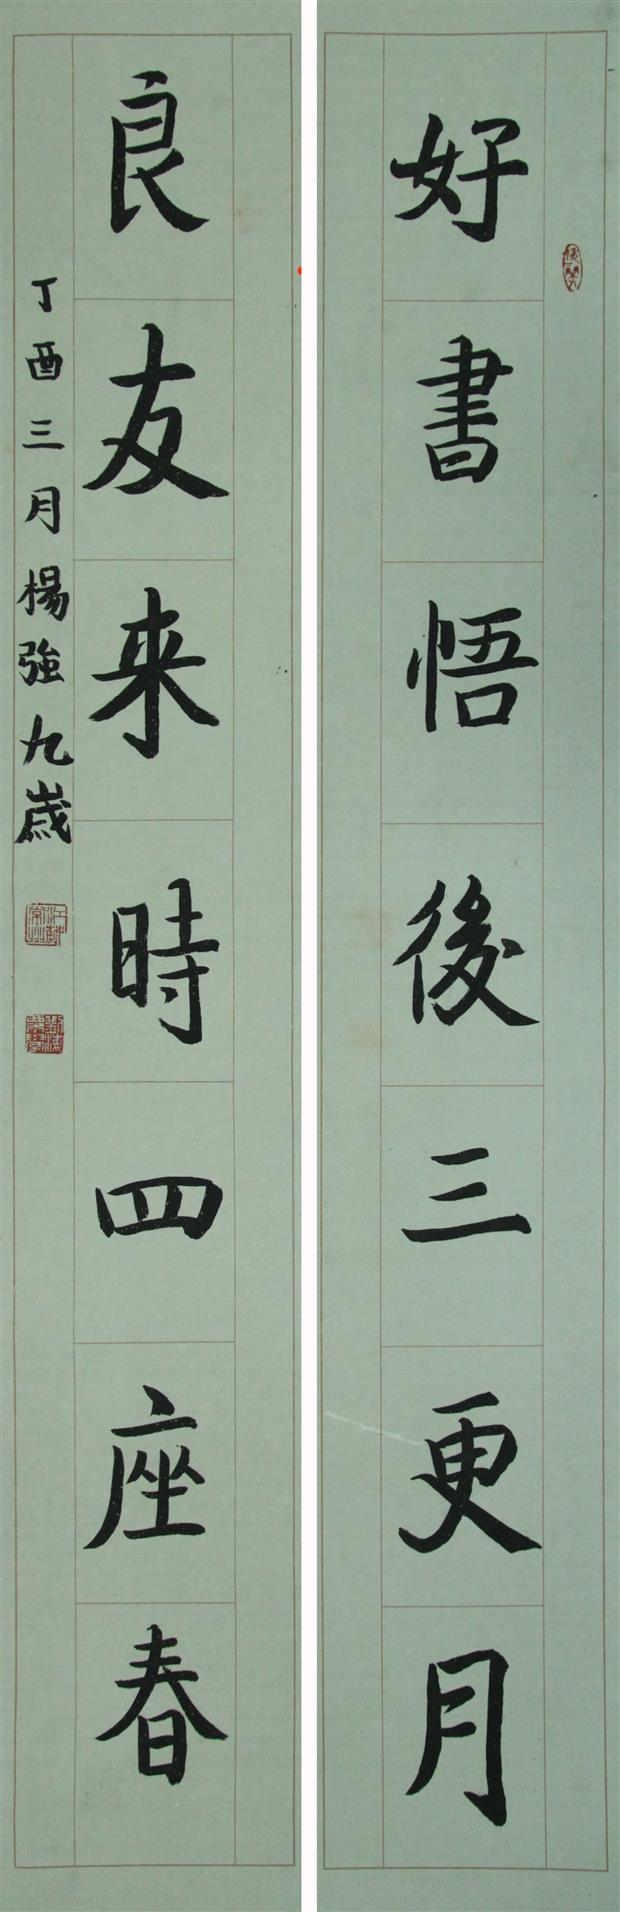 好書悟後三更月
良友来時四座春
丁酉三月楊強九歲